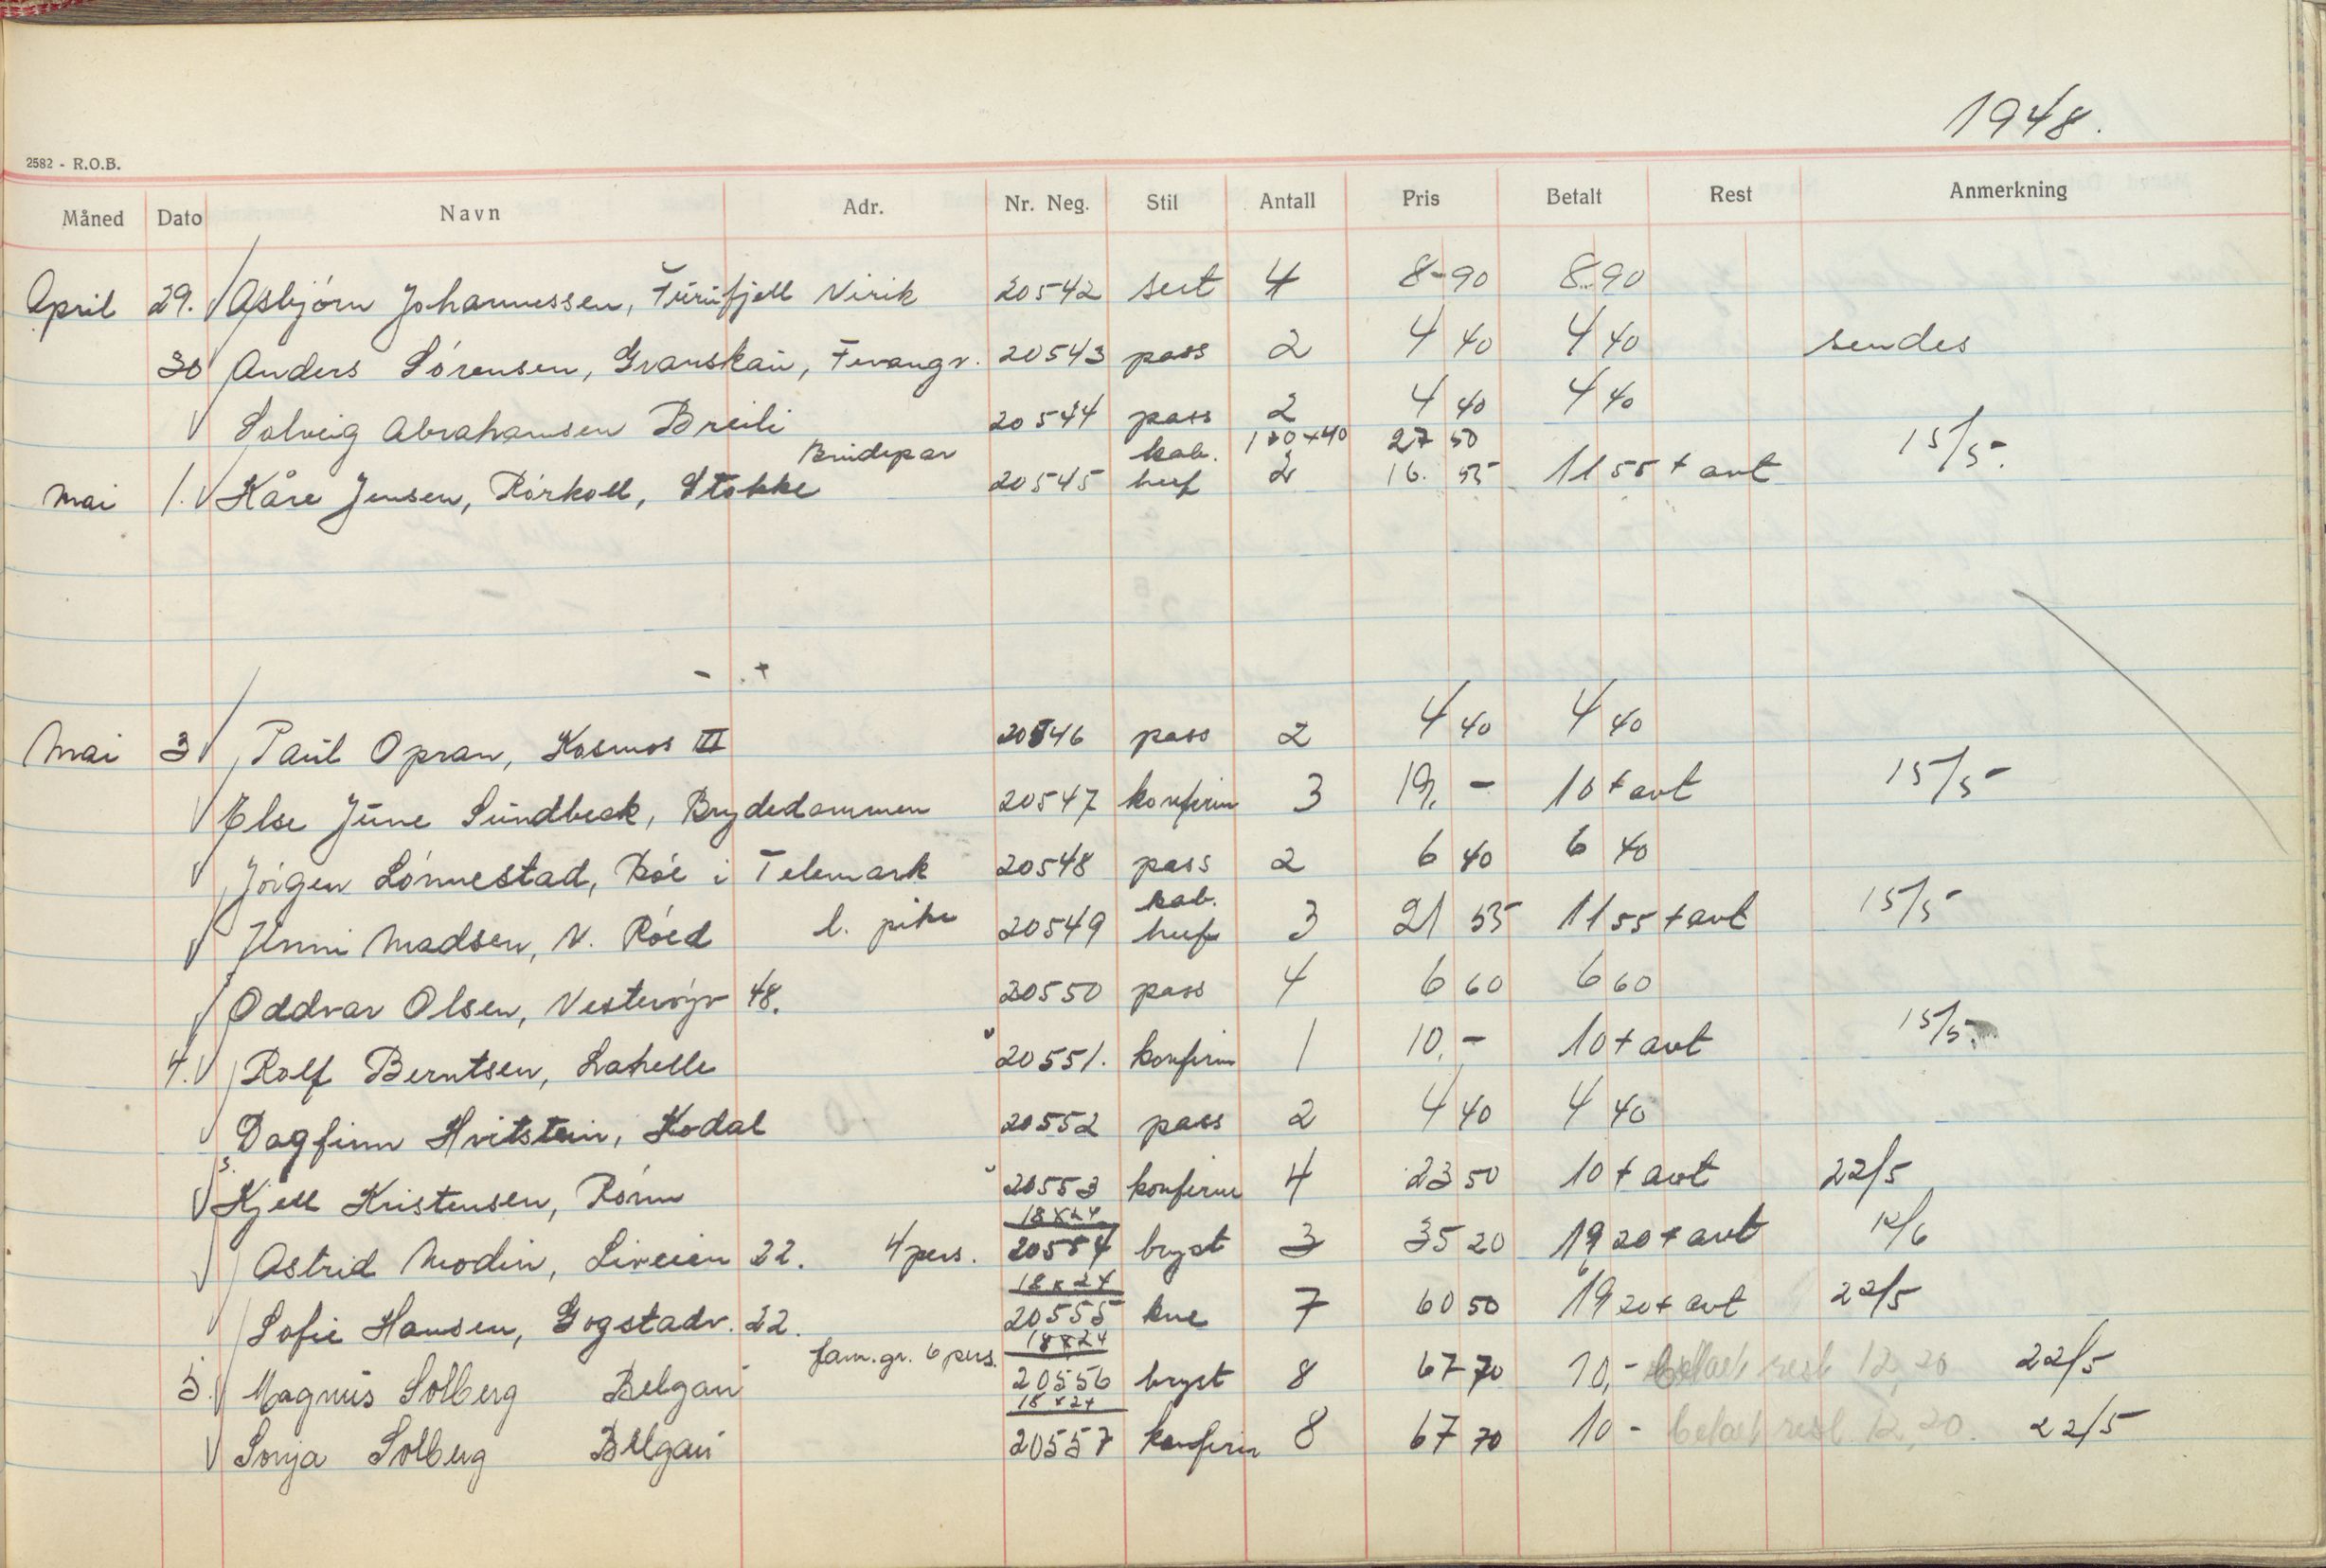 1948.
2582 - R.O.B.
Måned Dato Navn Adr. Nr. Neg. Stil Antall Pris Betalt Rest Anmerkning
April 29. Asbjörn Johannessen, Furufjell Virik 20542 4 8-90 8.90
30 Anders Sörensen, Granskau, Fevangv. 20543 pass 2 4 40 4 40 sendes
Solveig Abrahamsen Breili 20544 pass 2 4 40 4 40
Brudepar kab. 27 50
Mai 1. Kåre Jensen, Rörkoll, Stokke 20545 2 16. 55 11 55 + avt 15/5.
Mai 3 Paul Opran, Kosmos III 20546 pass 2 4 40 4 40
Else June Sundbeck, Brydedammen 20547 konfirm 3 19, - 10 + avt 15/5-
Jörgen Lönnestad, Böe i Telemark 20548 pass 2 6 40 6 40
kab.
Jenni Madsen, N. Röed l. pike 20549 3 21 55 11 55 + avt 15/5-
Oddvar Olsen, Vesteröyv 48. 20550 pass 4 6 60 6 60
4. Rolf Berntsen, Lahelle 20551. konfirm 1 10,- 10 + avt 15/5.
Dagfinn Hvitstein, Kodal 20552 pass 2 4 40 4 40
Kjell Kristensen, Rörm 20553 konfirm 4 23 50 10 + avt 22/5
18x24
Astrid Modin, Liveien 22. 4 pers. 20554 bryst 3 35 20 19 20 + avt 12/6
18x24
Sofie Hansen, Gogstadv. 22. 20555 kne 7 60 50 19 20 + avt 22/5
fam.gr. 6 pers. 18x24
5. Magnus Solberg Belgau 20556 bryst 8 67 70 10,- betalt rest 12,20 22/5
18x24
Sonja Solberg Belgau 20557 konfirm 8 67 70 10 - betalt rest 12,20. 22/5